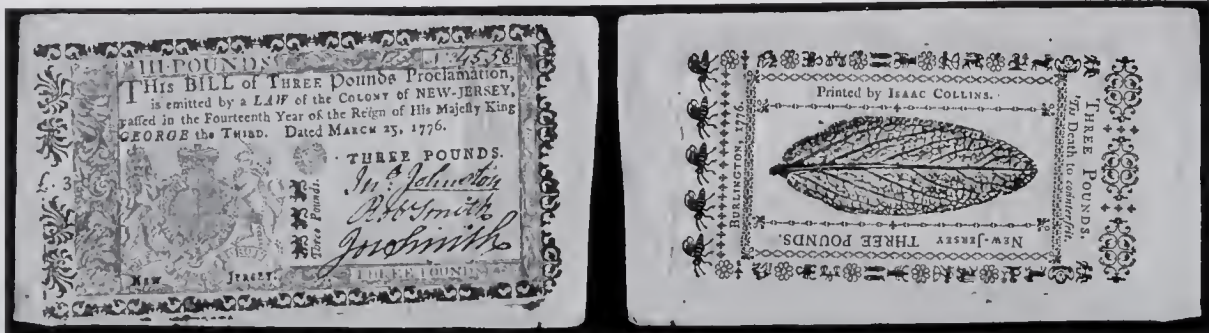 III POUNDS
THIS BILL of THREE Pounds Proclamation,
is emitted by a LAW of the COLONY of NEW-JERSEY,
passed in the Fourteenth Year of the Reign of His Majesty King
GEORGE the THIRD. Dated MARCH 25, 1776.
THREE POUNDS.
Three Pounds.
Jno. Johnston
Robt Smith
Jno Smith
NEW JERSEY.
THREE POUNDS
Printed by ISAAC COLLINS.
BURLINGTON, 1776.
NEW-JERSEY THREE POUNDS.
THREE POUNDS.
'Tis Death to counterfeit.